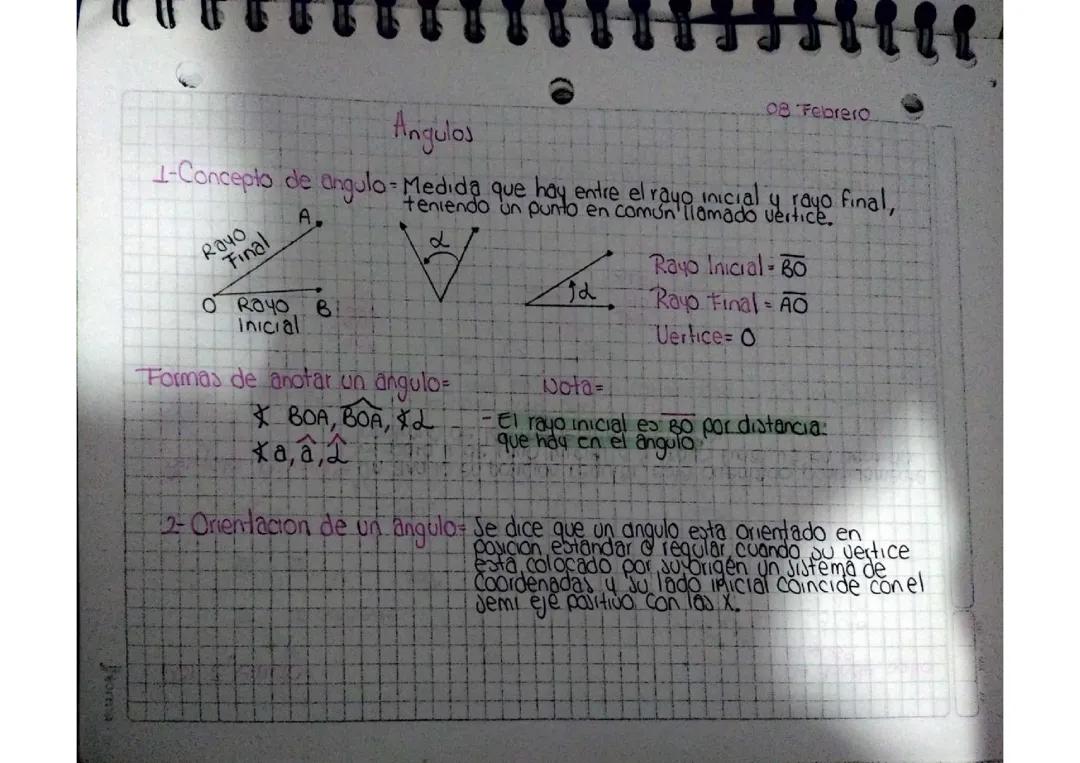 08 Febrero
Angulos
1-Concepto de angulo= Medida que hay entre el rayo inicial y rayo final,
teniendo un punto en común llamado vertice.
A
Rayo
Final
O Rayo B
Inicial
α
α
Rayo Inicial = B̅O̅
Rayo Final = A̅O̅
Vertice= O
Formas de anotar un ángulo=
∡ BOA, B͡OA, ∡α
∡a, â, α̂
Nota=
- El rayo inicial es B̅O̅ por distancia:
que hay en el angulo
2- Orientacion de un ángulo= Se dice que un angulo esta orientado en
posicion estandar o regular cuando su vertice
está colocado por su origen un sistema de
coordenadas y su lado inicial coincide con el
semi eje positivo con las X.